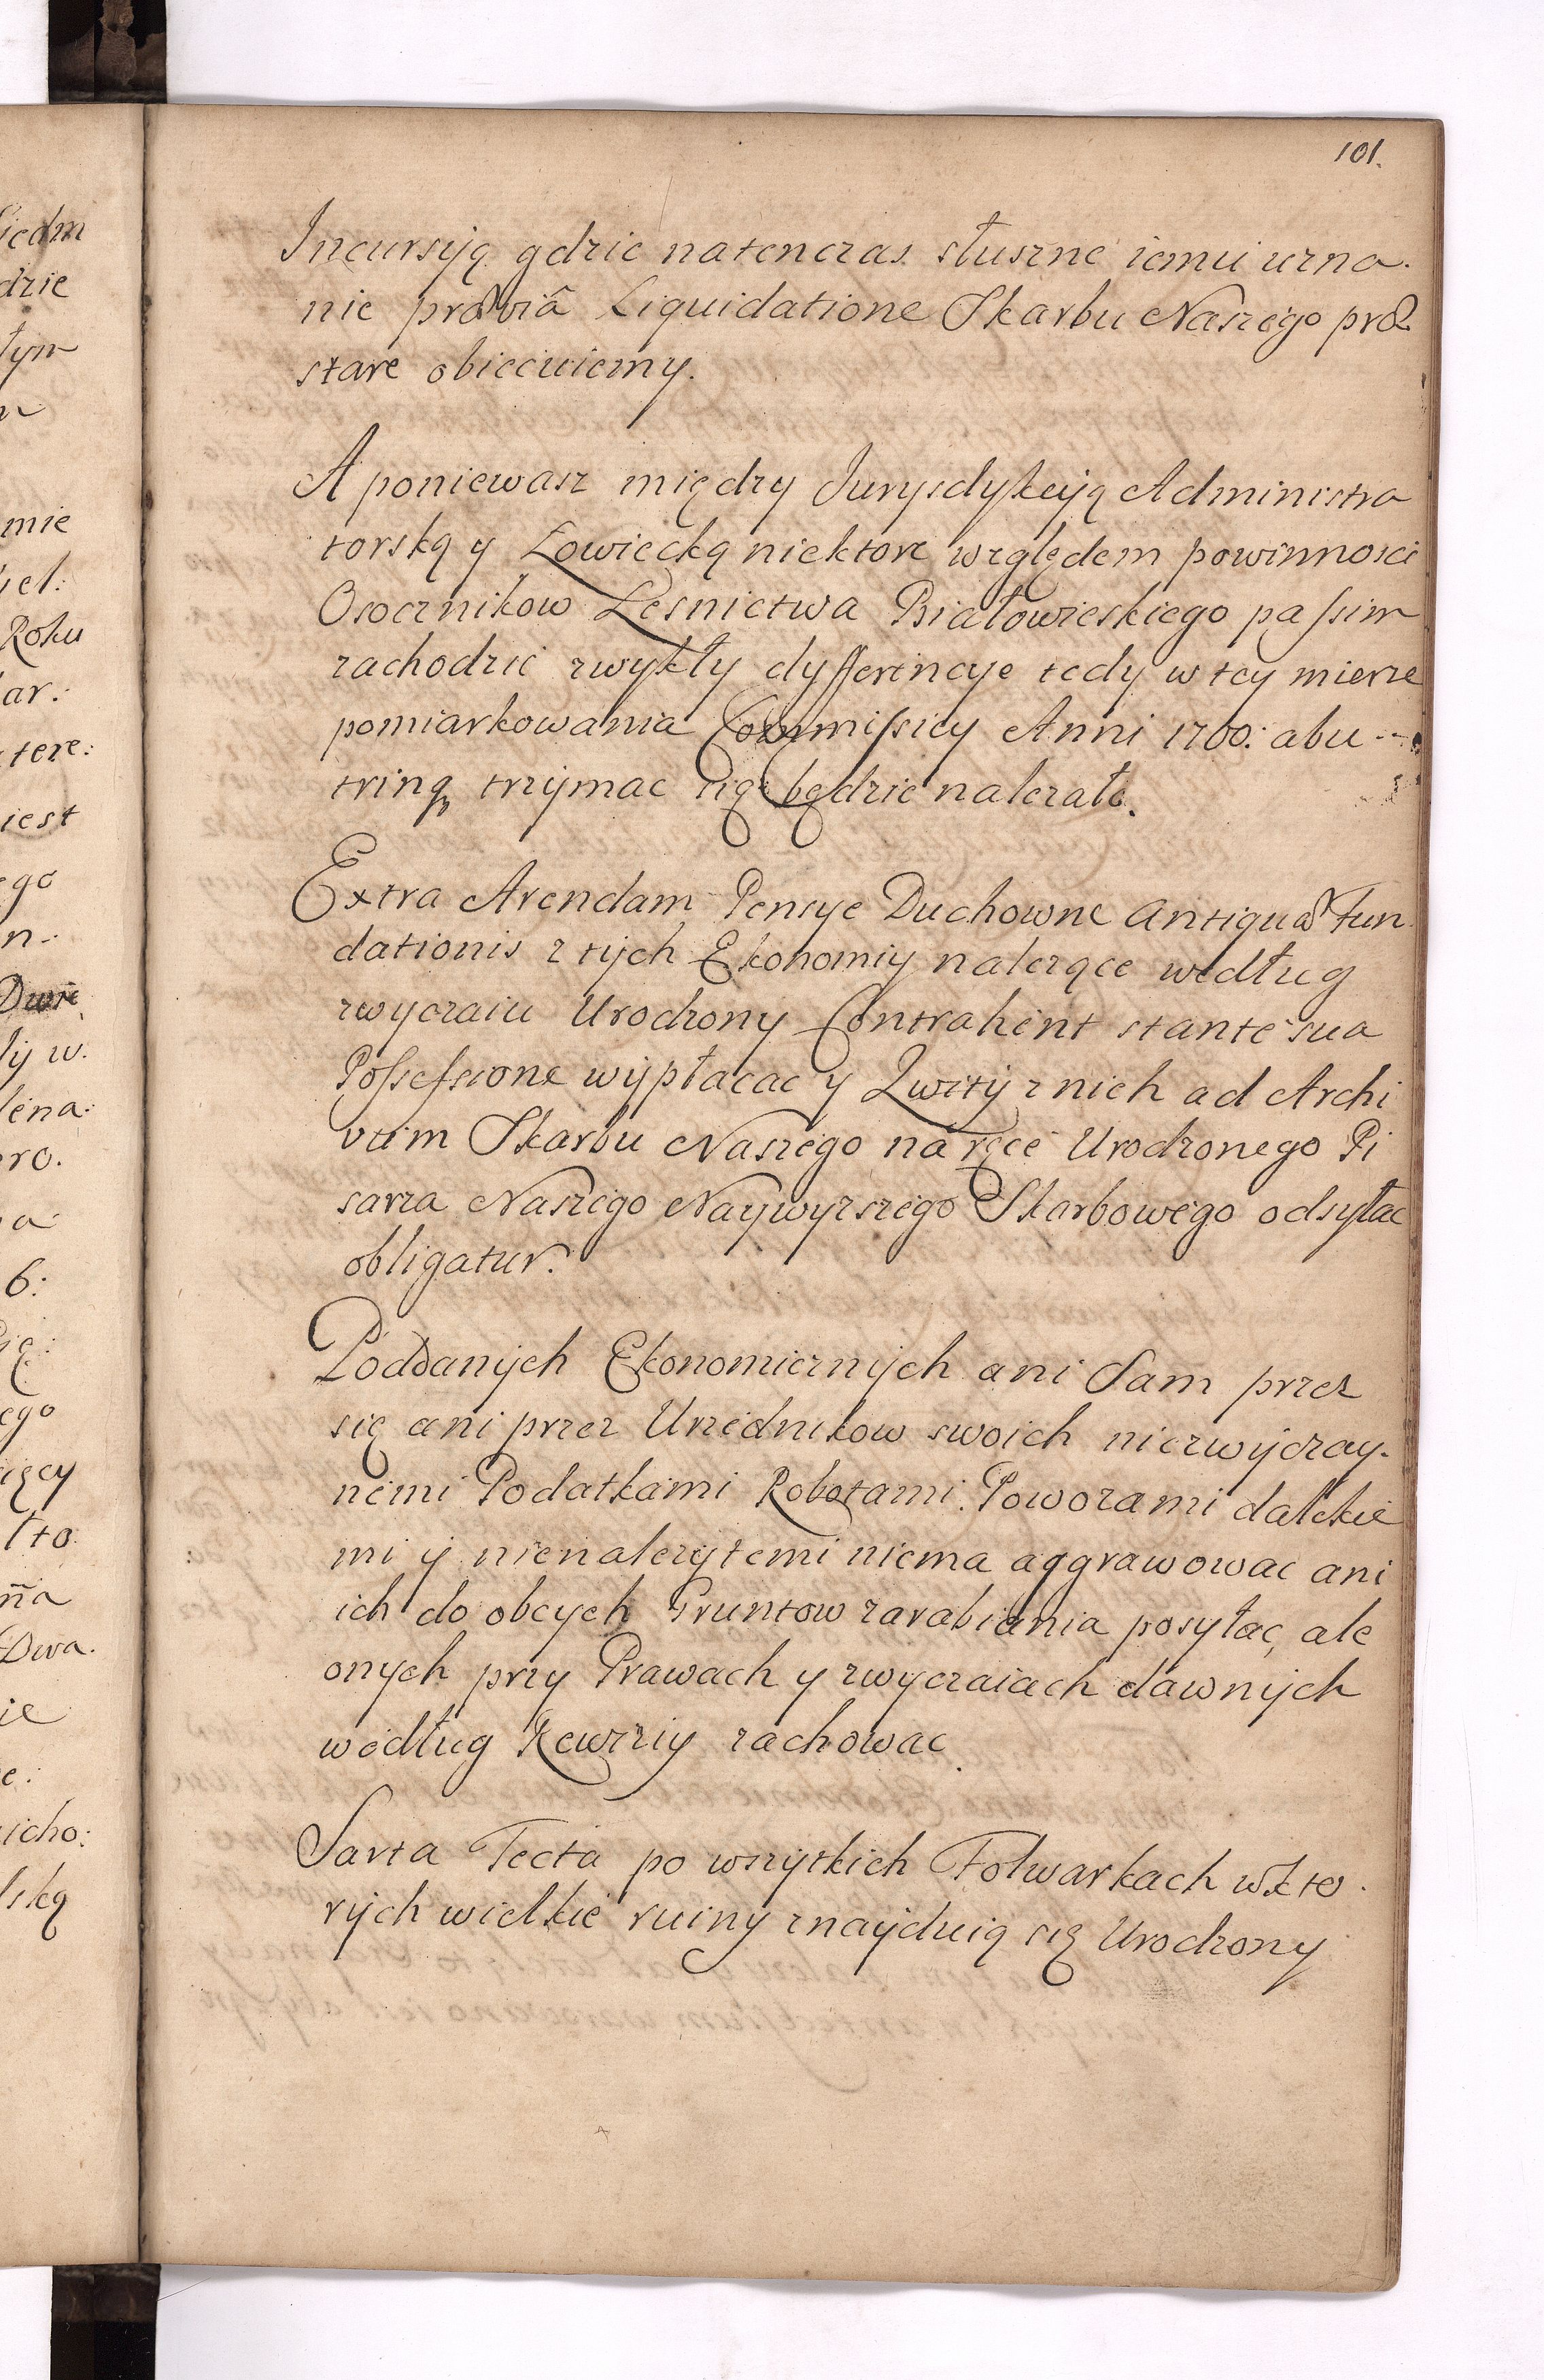 101.
Incursyią gdzie natenczas słuszne iemu uzna.
nie præviâ Liquidatione Skarbu Naszego præ
stare obiecuiemy.
A poniewasz między Jurysdykcyią Administra
torską y Łowiecką niektore względem powinnosci
Osocznikow Lesnictwa Białowieskiego passim
zachodzić zwykły dyfferencye tedy w tey mierze
pomiarkowania Commissiey Anni 1700: abu
trinq trzymac się będzie nalezało.
Extra Arendam Pensye Duchowne Antiquæ Fun
dationis z tych Ekonomiy nalezące według
zwyczaiu Urodzony Contrahent stante sua
Possessione wypłacac y Kwity z nich ad Archi
vum Skarbu Naszego na ręce Urodzonego Pi
sarza Naszego Naywyzszego Skarbowego odsyłac
obligatur.
Poddanych Ekonomicznych ani Sam przez
się ani przez Urzednikow swoich niezwyczay-
nemi Podatkami Robotami Powozami dalekie
mi y nienalezytemi niema aggrawowac ani
ich do obcych Gruntow zarabiania posyłac, ale
onych przy Prawach y zwyczaiach dawnych
według Rewiziy zachowac.
Sarta Tecta po wszytkich Folwarkach w kto.
rych wielkie ruiny znayduią się Urodzony